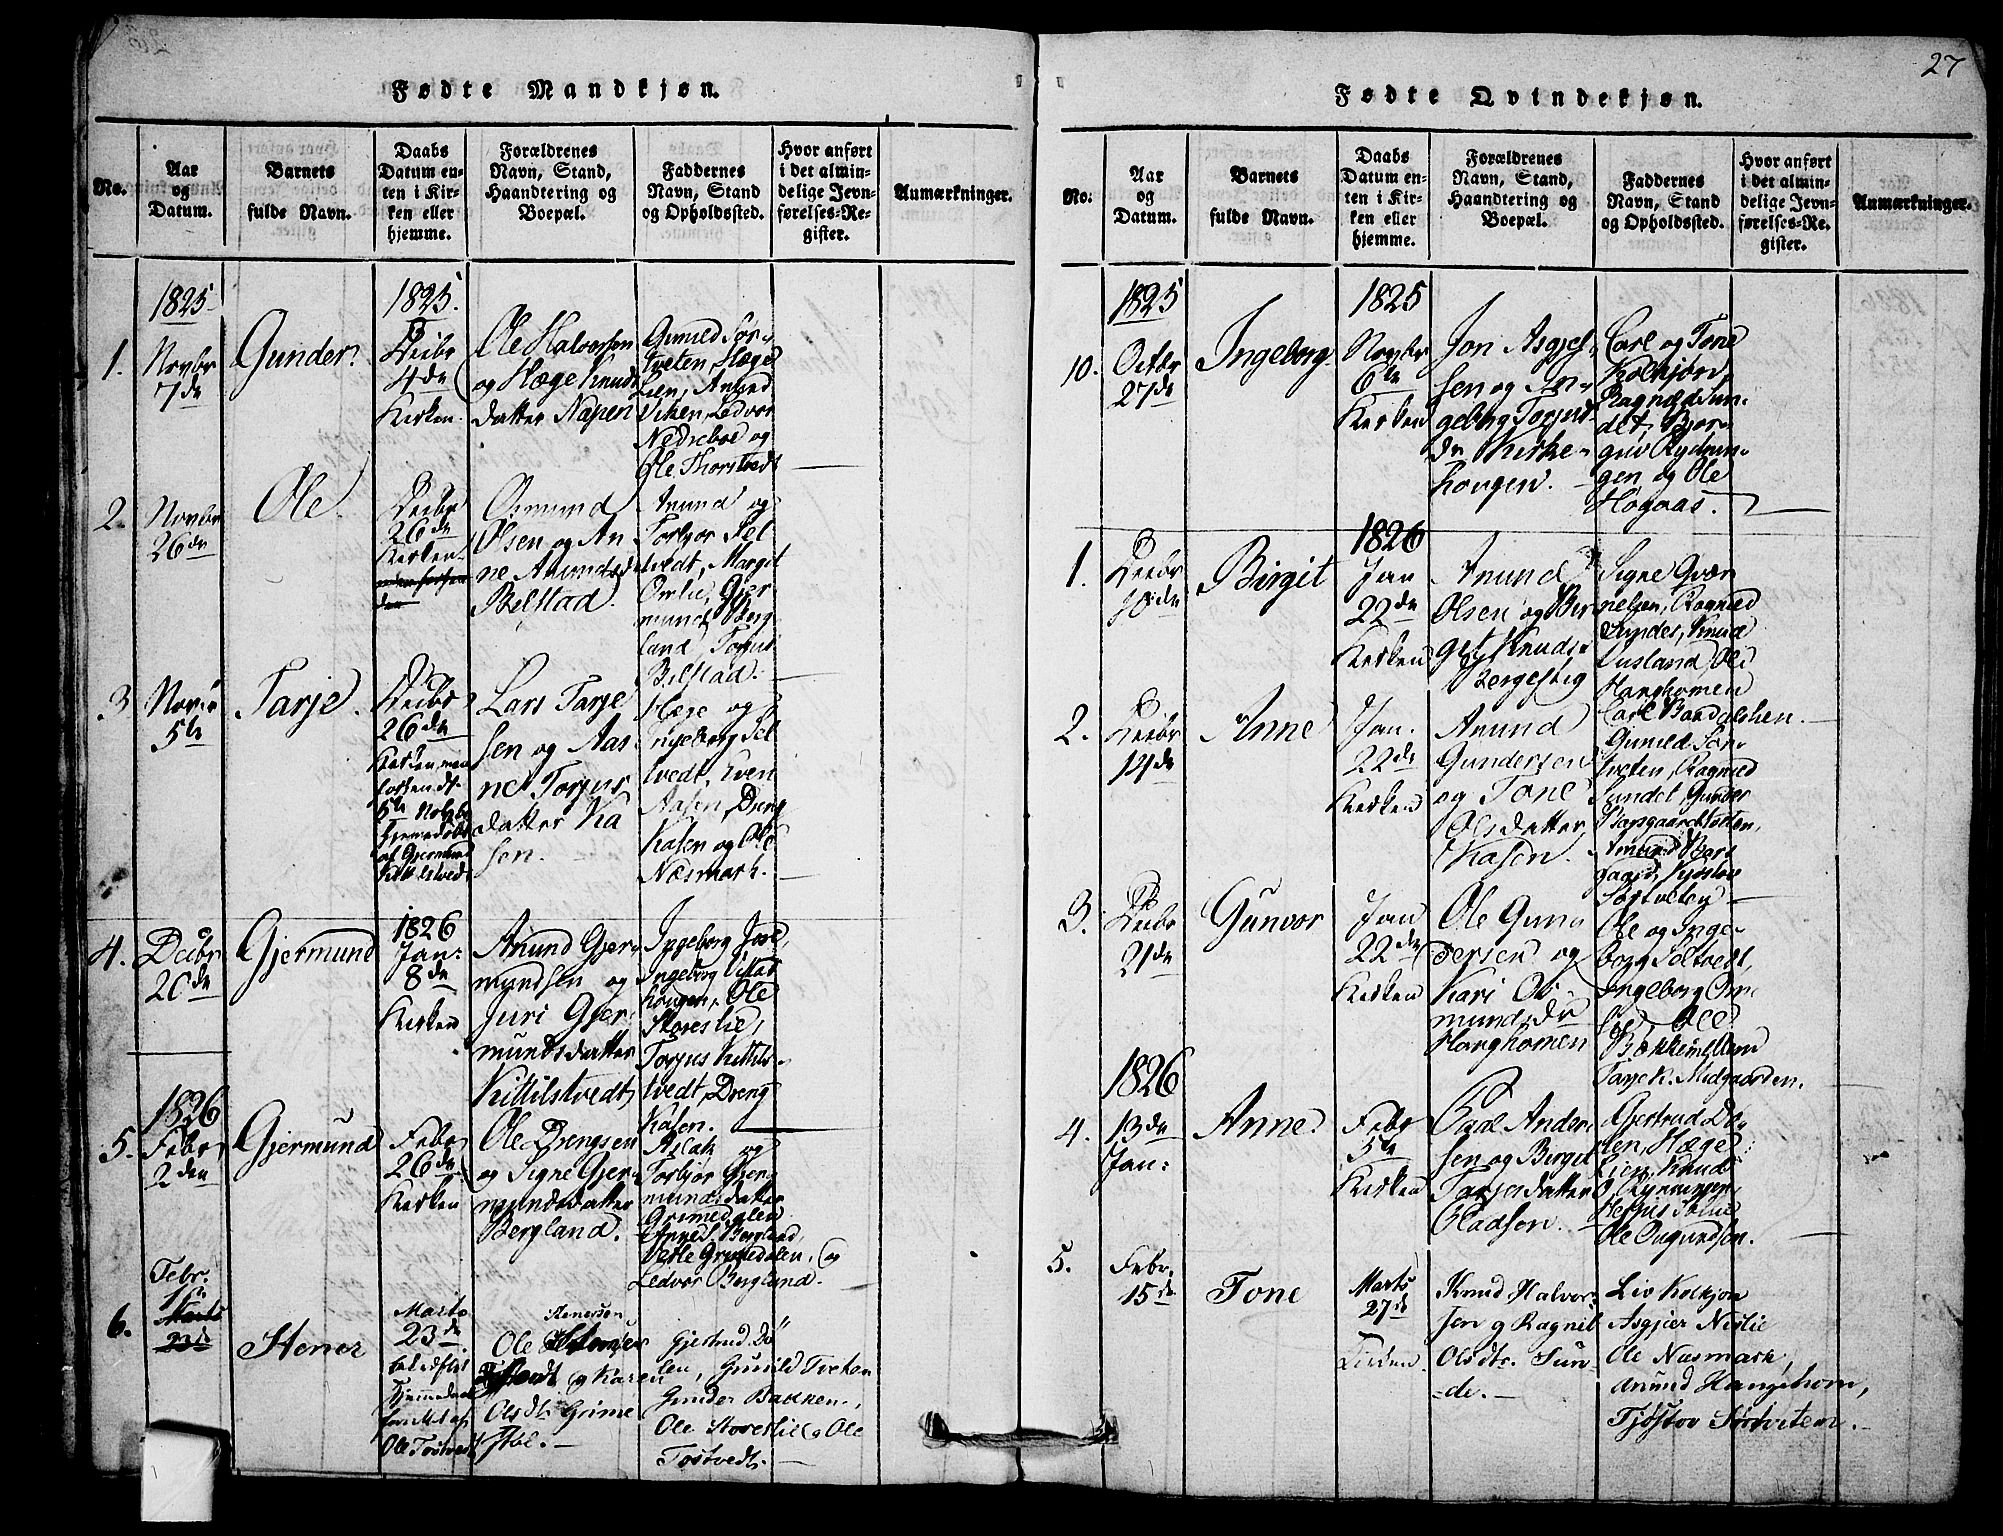 27
Fødte Mandkjøn.
No.
Aar
og
Datum.
Barnets
fulde Navn.
Daabs
Datum en-
ten i Kir-
ken eller
hjemme.
Forældrenes
Navn, Stand,
Haandtering og
Boepæl.
Faddernes
Navn, Stand
og Opholdssted.
Hvor anført
i det almin-
delige Jevn-
førelses-Re-
gister.
Anmærkninger.
1.
1825
Novbr
7de
Gunder.
1825.
Decbr
4de
Kirken
Ole Halvorsen
og Hæge Knuds
datter Napen
Gunild Sør-
tveten, Hæge
Lien, Anund
Viken, Ledvor
Nedreboe og
Ole Thorstvedt
2.
Novbr
26de
Ole
Decbr
26de
Kirken
Osmund
Olsen og An
ne Anundsd
Belstad.
Anund og
Torbjør Sel
tvedt, Margit
Omlie, Gjer
mund Berg
land, Torjus
Belstad.
3
5te
Tarje
Decbr
26de
Kirken, men
5te Novbr
hjemedøbt
af Gjermund
Kittilstvedt
Lars Tarje
sen og Aas
ne Torjus
datter Kaa
sen.
Hæge og
Ingeborg Sel
tvedt, Even
Aasen, Dreng
Kaasen og Ole
Næsmark.
4.
Decbr
20de
Gjermund
1826
Jan:
8de
Kirken
Anund Gjer
mundsen og
Juri Gjer
mundsdatter
Kittilstvedt
Ingeborg
Ingeborg
hougen, Ole
Storeslie,
Torjus Kittils-
tvedt, Dreng
Kåsen.
5.
1826
Febr
2den
Gjermund
Febr
26de
Kirken
Ole Drengsen
og Signe Gjer
mundsdatter
Bergland.
Aslak og
Torbjør Gjer
mundsdatter
Grimedalen
Anne Bergland,
Vetle Grimedalen, og
Ledvor Bergland.
6.
Febr.
Marts
23de
Stener
Marts
23de
Ole Tostvedt
Stenersen
Ole
og Karen
Olsdtr Grime
støl.
Gjertrud Dö
len, Gunild Tveten
Gunder Bakken,
Ole Storeslie og Ole
Tostvedt.
Fødte Qvindekjøn.
No.
Aar
og
Datum.
Barnets
fulde Navn.
Daabs
Datum en-
ten i Kir-
ken eller
hjemme.
Forældrenes
Navn, Stand,
Haandtering og
Boepæl.
Faddernes
Navn, Stand
og Opholdssted.
Hvor anført
i det almin-
delige Jevn-
førelses-Re-
gister.
Anmærkninger.
10.
1825
Octbr
27de
Ingeborg
1825
Novbr
6te
Kirken
Jon Asgjer-
sen og In-
geborg Torjus
dr Kirke-
hougen.
Carl og Tone
Kolkjøn,
Ragnild Sun-
det, Bjør-
guv Rydnin-
gen og Ole
Hogaas.
1.
Decbr
10de
Birgit
1826
Jan
22de
Kirken
Anund
Olsen og Bir
git Knuds
Bergestig
Signe Qvær
nelien, Ragnild
Sundet, Knud
Øusland, Ole
Hanghomen
Carl Bardalshen.
2.
Decbr
14de
Anne
Jan.
22de
Kirken
Anund
Gundersen
og Tone
Olsdatter
Kasen.
Gunild Sør-
tveten, Ragnild
Sundet, Gunder
Anund
Kjøstov
Sørtveten
3.
Decbr
21de
Gunvor
Jan
22de
Kirken
Ole Gun-
dersen og
Kari Os-
mundsdr
Hanghomen
Ole og Inge-
borg Seltvedt,
Ingeborg Om
lie, Ole
Bækkemellem
Midgaarden.
4.
1826
13de
Jan:
Anne.
Febr
5te
Kirken
Paal Ander-
sen og Birgit
Tarjesdatter
Cladsen.
Gjertrud Dø-
len, Hæge
Lien, Knud
Ole Ougundsen.
5.
Febr.
15de
Tone
Marts
27de
Kirken
Knud Halvor-
sen og Ragnil
Olsdtr. Sun
-de.
Liv Kolkjøn
Asgjær Neslie
Ole Næsmark,
Anund Hangehom,
Tjøstov Sørtveten.